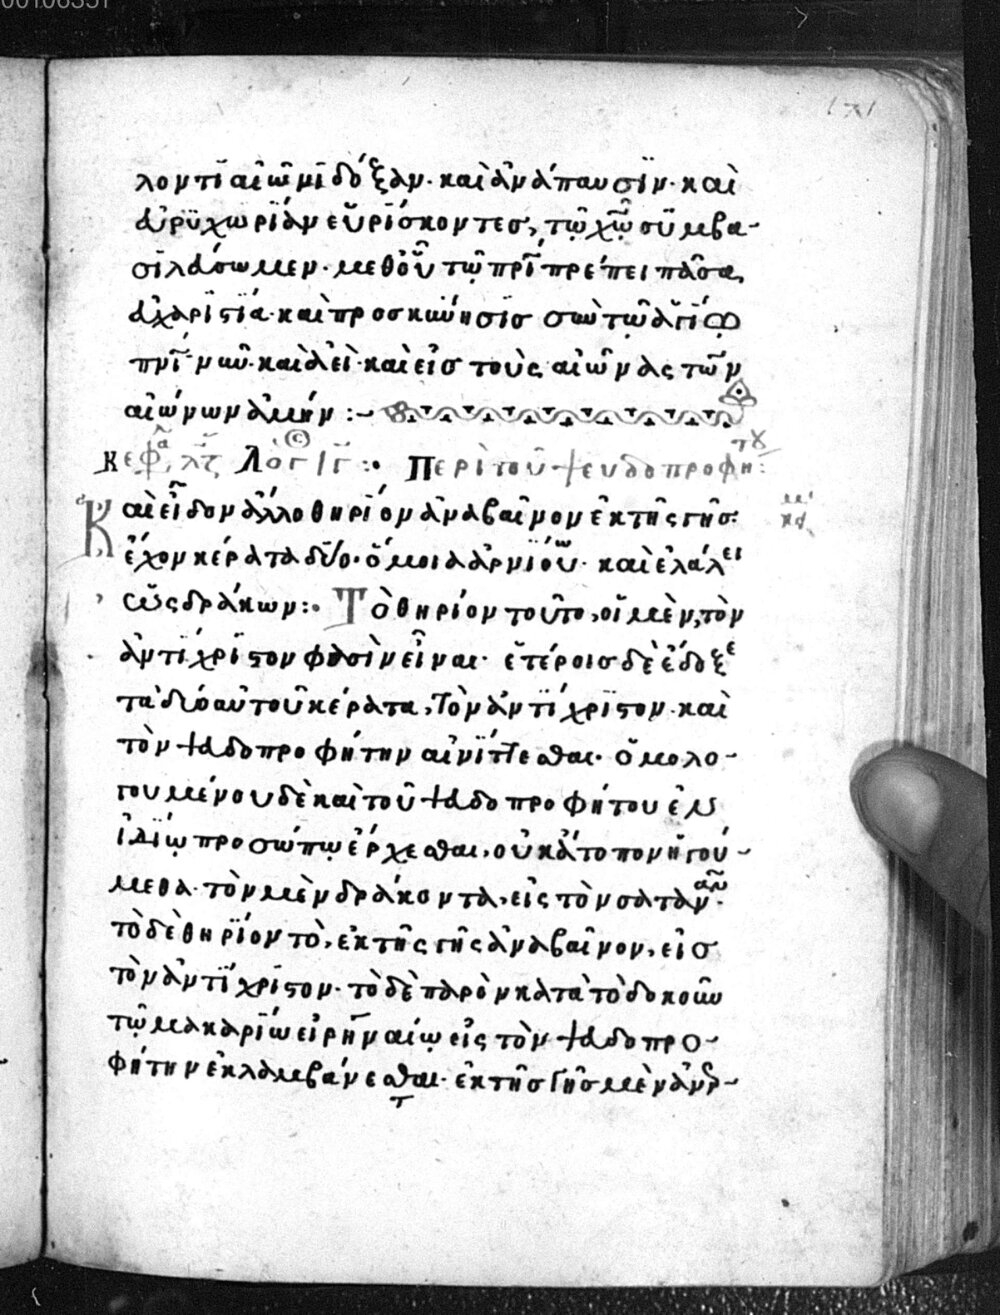 00106351
171
λοντι αἰῶνι δόξαν· καὶ ἀνάπαυσιν· καὶ
εὐρυχωρίαν εὑρίσκοντες, τῷ χῷ συμβα-
σιλεύσωμεν· μεθ οὗ τῷ πρι πρέπει πᾶσα
εὐχαριστία· καὶ προσκύνησις σὺν τῷ ἁγίῳ
πνι· νῦν· καὶ ἀεὶ· καὶ εἰς τοὺς αἰῶνας τῶν
αἰώνων ἀμήν :~
κεφα λζ Λόγ ιγ :· Περὶ τοῦ ψευδοπροφήτου :
Καὶ εἶδον ἄλλο θηρίον ἀναβαῖνον ἐκ τῆς γῆς·
ἔχον κέρατα δύο· ὅμοια ἀρνίου· καὶ ἐλάλει
ὡς δράκων :· Τὸ θηρίον τοῦτο, οἱ μὲν, τὸν
ἀντίχριστον φασὶν εἶναι· ἑτέροις δὲ ἔδοξε
τὰ δύο αὐτοῦ κέρατα, τὸν ἀντίχριστον· καὶ
τὸν ψευδοπροφήτην αἰνίττεσθαι· ὁμολο-
γουμένου δὲ καὶ τοῦ ψευδοπροφήτου ἐν
ἰδίῳ προσώπῳ ἔρχεσθαι, οὐκ ἄτοπον ἡγού-
μεθα· τὸν μὲν δράκοντα, εἰς τὸν σατανᾶν·
τὸ δὲ θηρίον τὸ, ἐκ τῆς γῆς ἀναβαῖνον, εἰς
τὸν ἀντίχριστον· τὸ δὲ παρὸν κατὰ τὸ δοκοῦν
τῷ μακαρίῳ εἰρηναίῳ εἰς τὸν ψευδοπρο-
φήτην ἐκλαμβάνεσθαι· ἐκ τῆς γῆς μὲν ἀνερ-